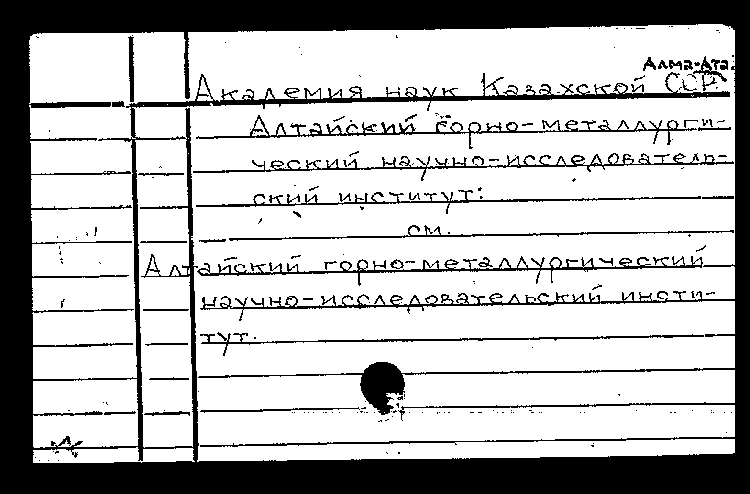 Алма-Ата.
Академия наук Казахской ССР.
Алтайский горно-металлурги-
ческий научно-исследователь-
ский институт:
см.
Алтайский горно-металлургический
научно-исследовательский инсти-
тут.